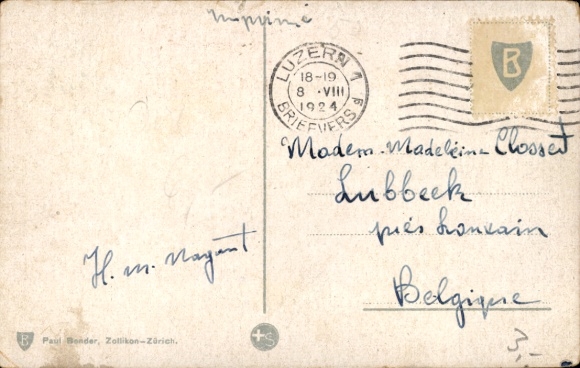 Imprimé
LUZERN 1
18-19
8. VIII
1924
BRIEFVERS
B
Madem. Madeleine Clossert
Lubbeek
près Louvain
Belgique
H. M. Nagant
B
Paul Bender, Zollikon-Zürich.
+S
3,-